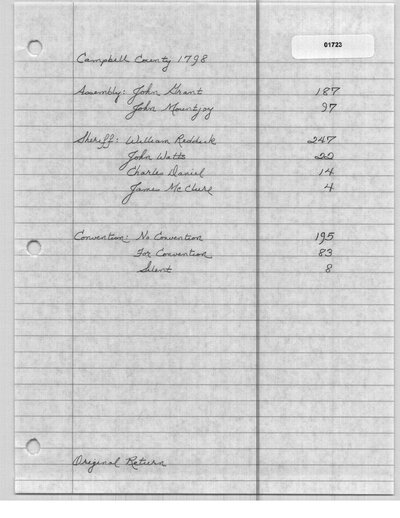 01723
Campbell County 1798
Assembly: John Grant 187
John Mountjoy 97
Sheriff: William Reddick 247
John Watts 20
Charles Daniel 14
James McClure 4
Convention: No Convention 195
For Convention 83
Silent 8
Original Return